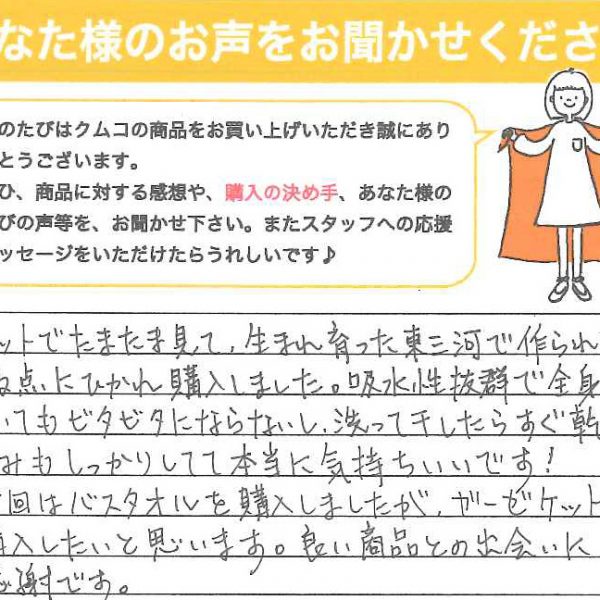 なた様のお声をお聞かせくださ
のたびはクムコの商品をお買い上げいただき誠にあり
とうございます。
ひ、商品に対する感想や、購入の決め手、あなた様の
びの声等を、お聞かせ下さい。またスタッフへの応援
ッセージをいただけたらうれしいです♪
ットでたまたま見て、生まれ育った東三河で作られ
点にひかれ購入しました。吸水性抜群で全身
いてもビタビタにならないし、洗って干したらすぐ乾
みもしっかりしてて本当に気持ちいいです!
回はバスタオルを購入しましたが、ガーゼケット
購入したいと思います。良い商品との出会いに
謝です。